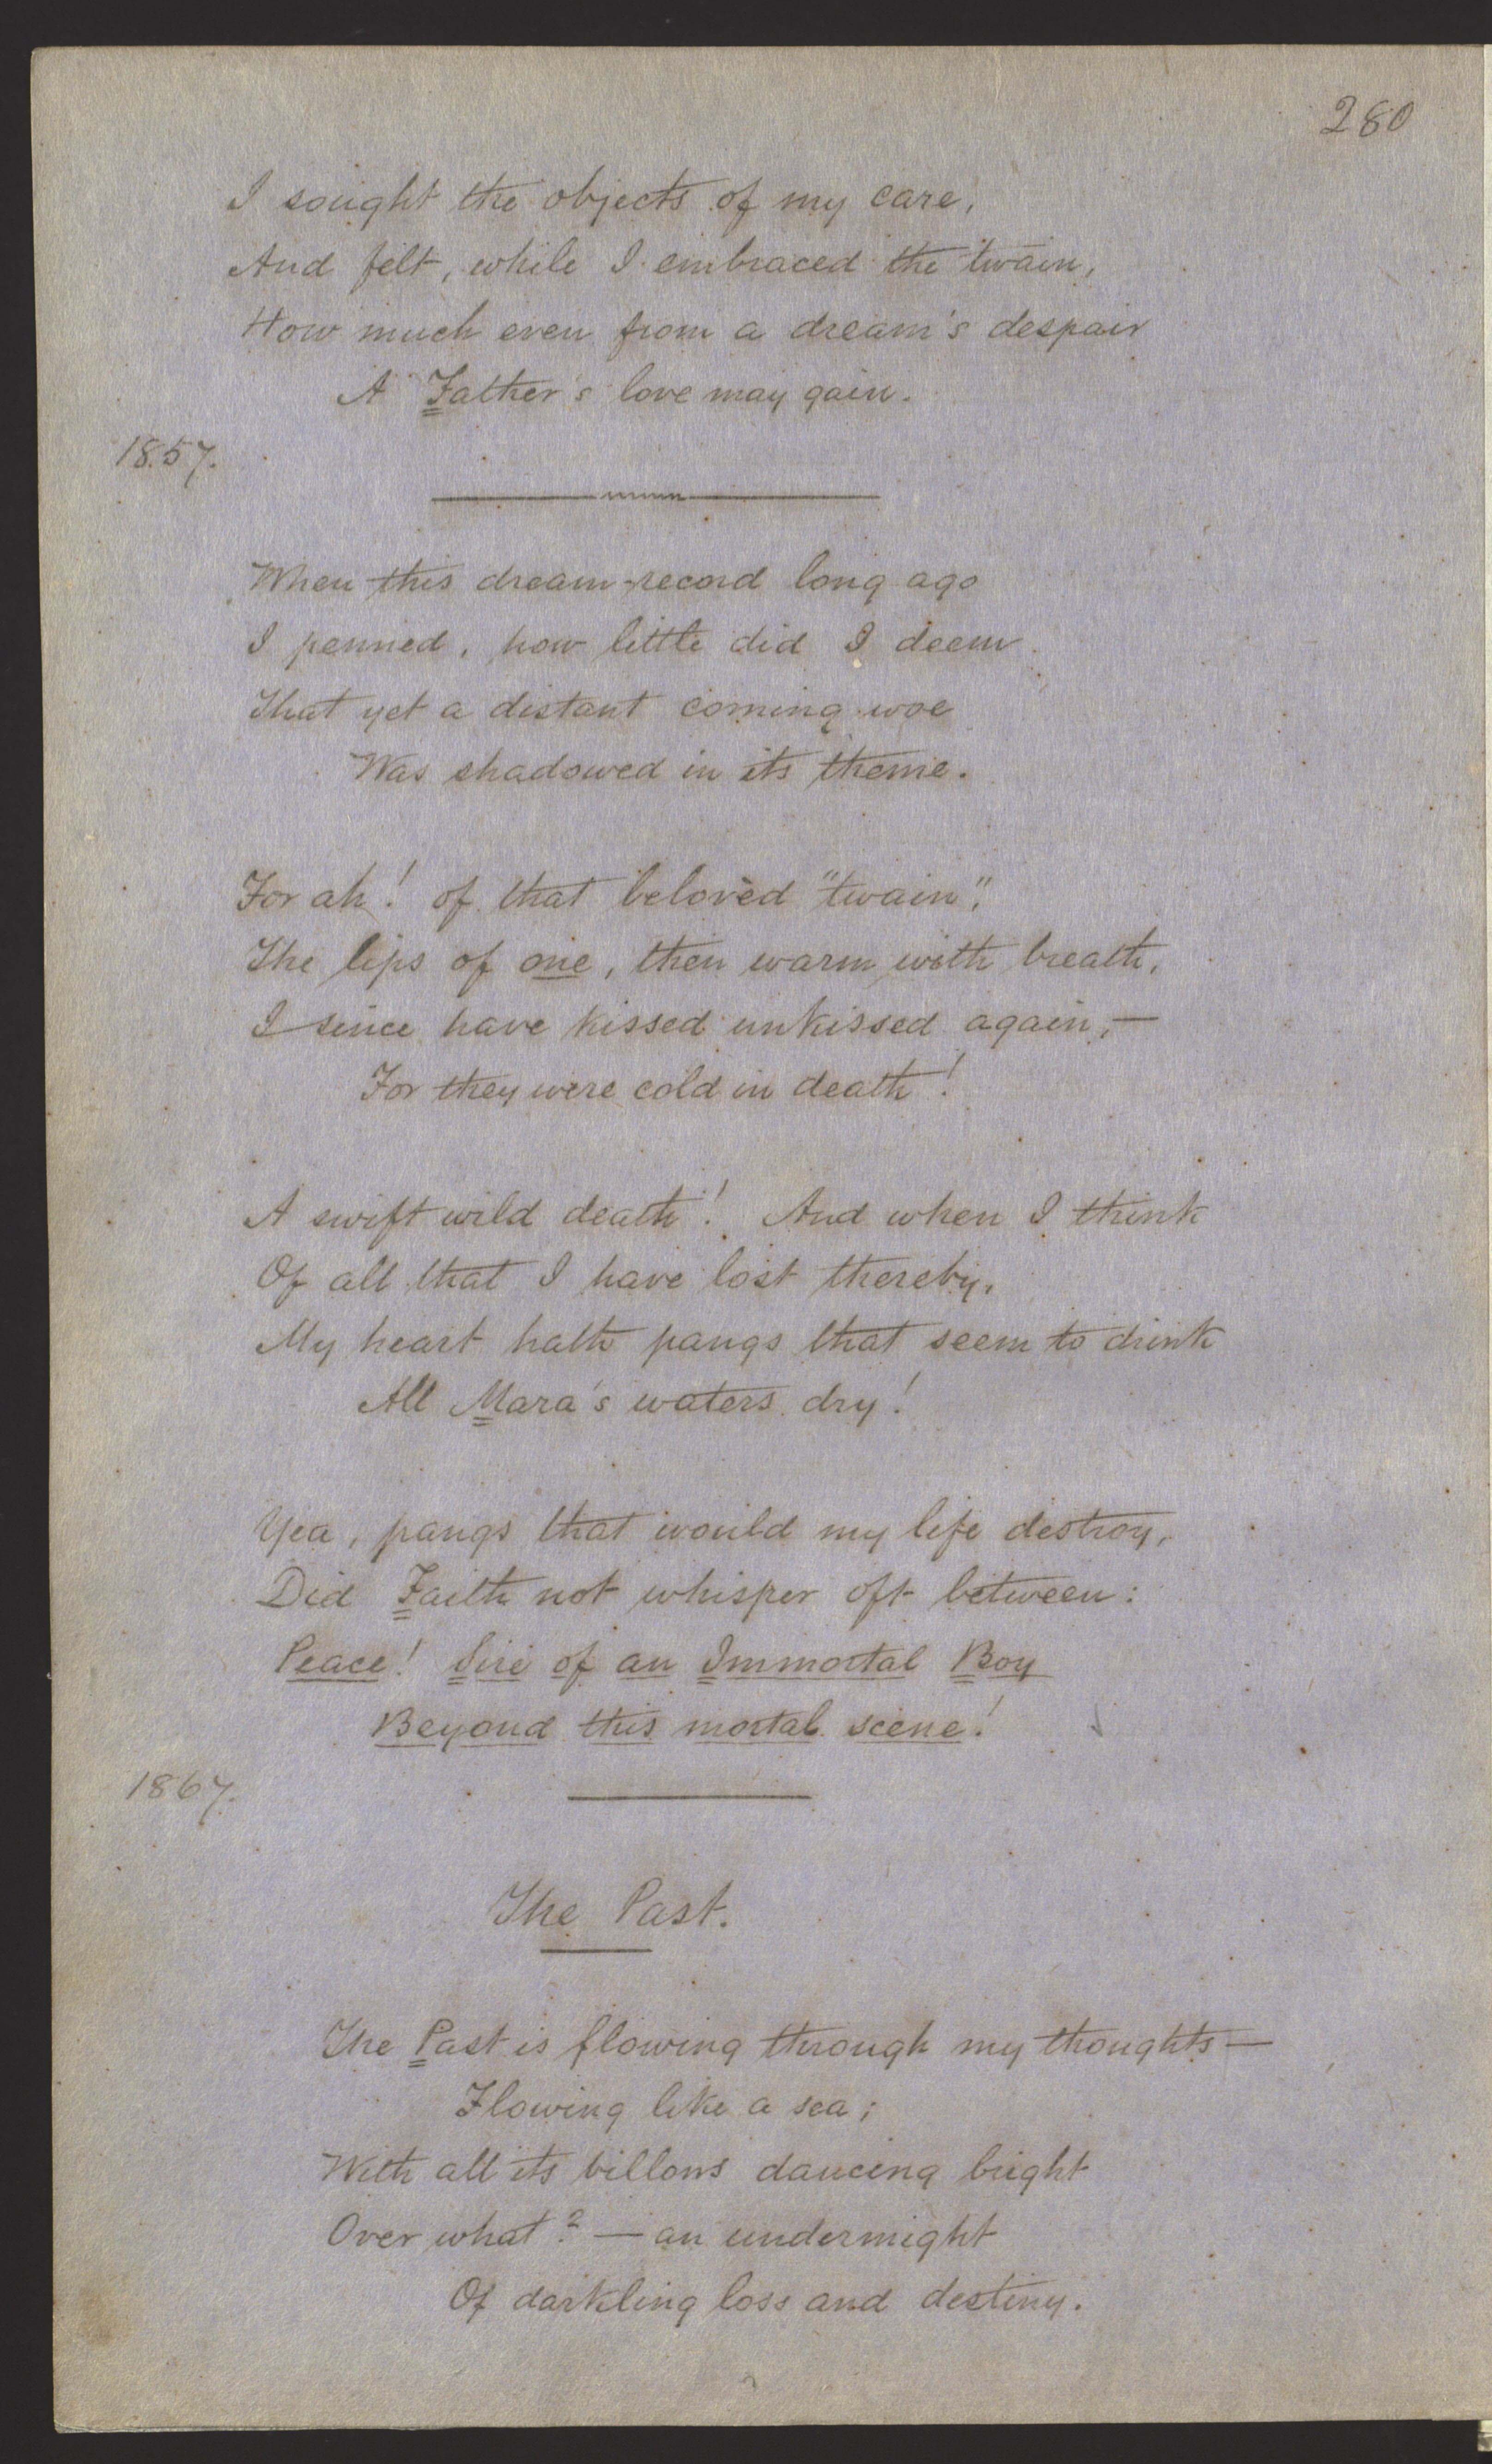 280
I sought the objects of my care,
And felt, while I embraced the twain,
How much even from a dream's despair
A Father's love may gain.
1857.
When this dream-record long ago
I penned, how little did I deem
That yet a distant coming woe
Was shadowed in its theme.
For ah! of that belovèd "twain",
The lips of one, then warm with breath,
I since have kissed unkissed again,—
For they were cold in death!
A swift wild death! And when I think
Of all that I have lost thereby,
My heart hath pangs that seem to drink
All Mara's waters dry!
Yea, pangs that would my life destroy,
Did Faith not whisper oft between:
Peace! Sire of an Immortal Boy
Beyond this mortal scene!
1867.
The Past.
The Past is flowing through my thoughts—
Flowing like a sea;
With all its billows dancing bright
Over what?—an undermight
Of darkling loss and destiny.